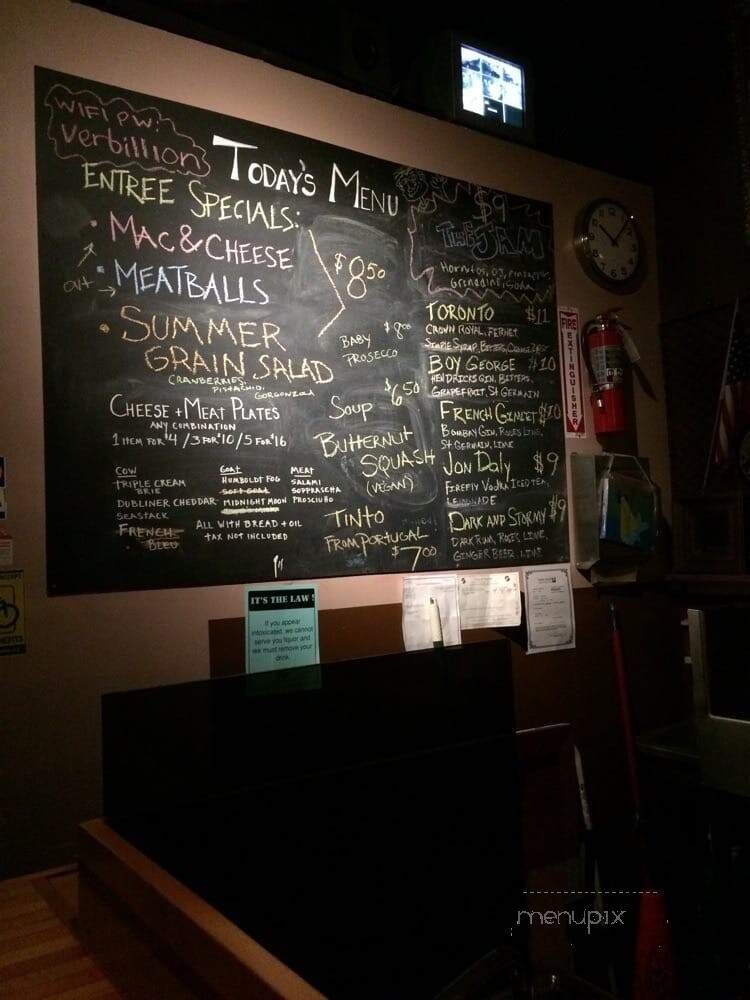 WIFI PW:
Verbillion
TODAY'S MENU
ENTREE SPECIALS:
• MAC & CHEESE
• MEATBALLS
out
$8.50
• SUMMER
GRAIN SALAD
CRANBERRIES,
PISTACHIO,
GORGONZOLA
CHEESE + MEAT PLATES
ANY COMBINATION
1 ITEM FOR $4 / 3 FOR $10 / 5 FOR $16
COW
TRIPLE CREAM
BRIE
DUBLINER CHEDDAR
SEASTACK
FRENCH
BLEU
GOAT
HUMBOLDT FOG
SOFT GOAT
MIDNIGHT MOON
MEAT
SALAMI
SOPPRASCHA
PROSCIUHO
ALL WITH BREAD + OIL
TAX NOT INCLUDED
BABY $8.00
PROSECCO
SOUP $6.50
BUTTERNUT
SQUASH
(VEGAN)
TINTO
FROM PORTUGAL
$7.00
$9
THE JAM
Hornitos, OJ, Pineapple,
Grenadine, Soda
TORONTO $11
CROWN ROYAL, FERNET
SIMPLE SYRUP, BITTERS,
BOY GEORGE $10
HENDRICKS GIN, BITTERS,
GRAPEFRUIT, ST GERMAIN
FRENCH GIMLET $10
BOMBAY GIN, ROSES LIME,
ST GERMAIN, LIME
JON DALY $9
FIREFLY VODKA ICED TEA,
LEMONADE
DARK AND STORMY $9
DARK RUM, ROSES LIME,
GINGER BEER, LIME
FIRE EXTINGUISHER
IT'S THE LAW!
If you appear
intoxicated, we cannot
serve you liquor and
we must remove your
drink.
menupix